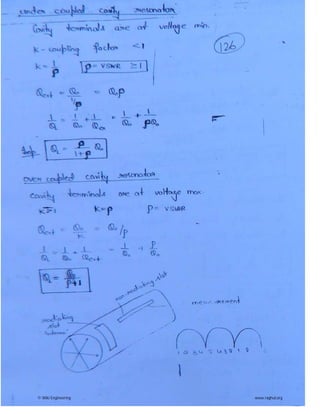 under coupled cavity resonator
Cavity terminals are at voltage min.
K - coupling factor < 1
(126)
K = 1/ρ  ρ = VSWR ≥ 1
Qext = Qo / 1/ρ = Qoρ
1/QL = 1/Qo + 1/Qex = 1/Qo + 1/ρQo
QL = ρ/1+ρ Qo
over coupled cavity resonator
cavity terminals are at voltage max.
K>1  K=ρ  ρ = VSWR
Qext = Qo/K = Qo/ρ
1/QL = 1/Qo + 1/Qext = 1/Qo + ρ/Qo
QL = Qo/ρ+1
non radiating slot
radiating slot
measurement
© Wiki Engineering
www.raghul.org